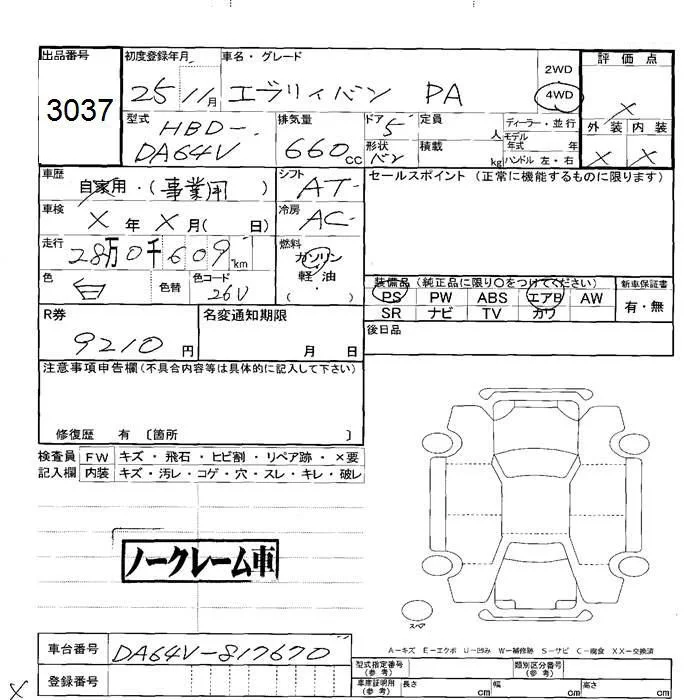 出品番号
3037
初度登録年月
25 11月
車名・グレード
エブリィバン PA
2WD
4WD
評価点
X
外装 内装
X X
型式
HBD-
DA64V
排気量
660cc
ドア 5
形状 バン
定員 人
積載 kg
ディーラー・並行
モデル年式 年
ハンドル 左・右
車歴
自家用・(事業用)
シフト
AT
セールスポイント(正常に機能するものに限ります)
車検
X年X月( 日)
冷房
AC
走行
28万0千609km
燃料
ガソリン
軽油
・
( )
色
白
色替
色コード
26V
装備品(純正品に限り○をつけてください)
PS PW ABS エアB AW
SR ナビ TV カワ
新車保証書
有・無
R券
9210円
名変通知期限
月 日
後日品
注意事項申告欄(不具合内容等は具体的に記入して下さい)
修復歴 有 〔箇所 〕
検査員 FW キズ・飛石・ヒビ割・リペア跡・×要
記入欄 内装 キズ・汚レ・コゲ・穴・スレ・キレ・破レ
ノークレーム車
スペア
A-キズ E-エクボ U-凹み W-補修跡 S-サビ C-腐食 XX-交換済
車台番号
DA64V-817670
登録番号
型式指定番号
(参考)
類別区分番号
(参考)
車庫証明用
(参考)
長さ cm
幅 cm
高さ cm
X